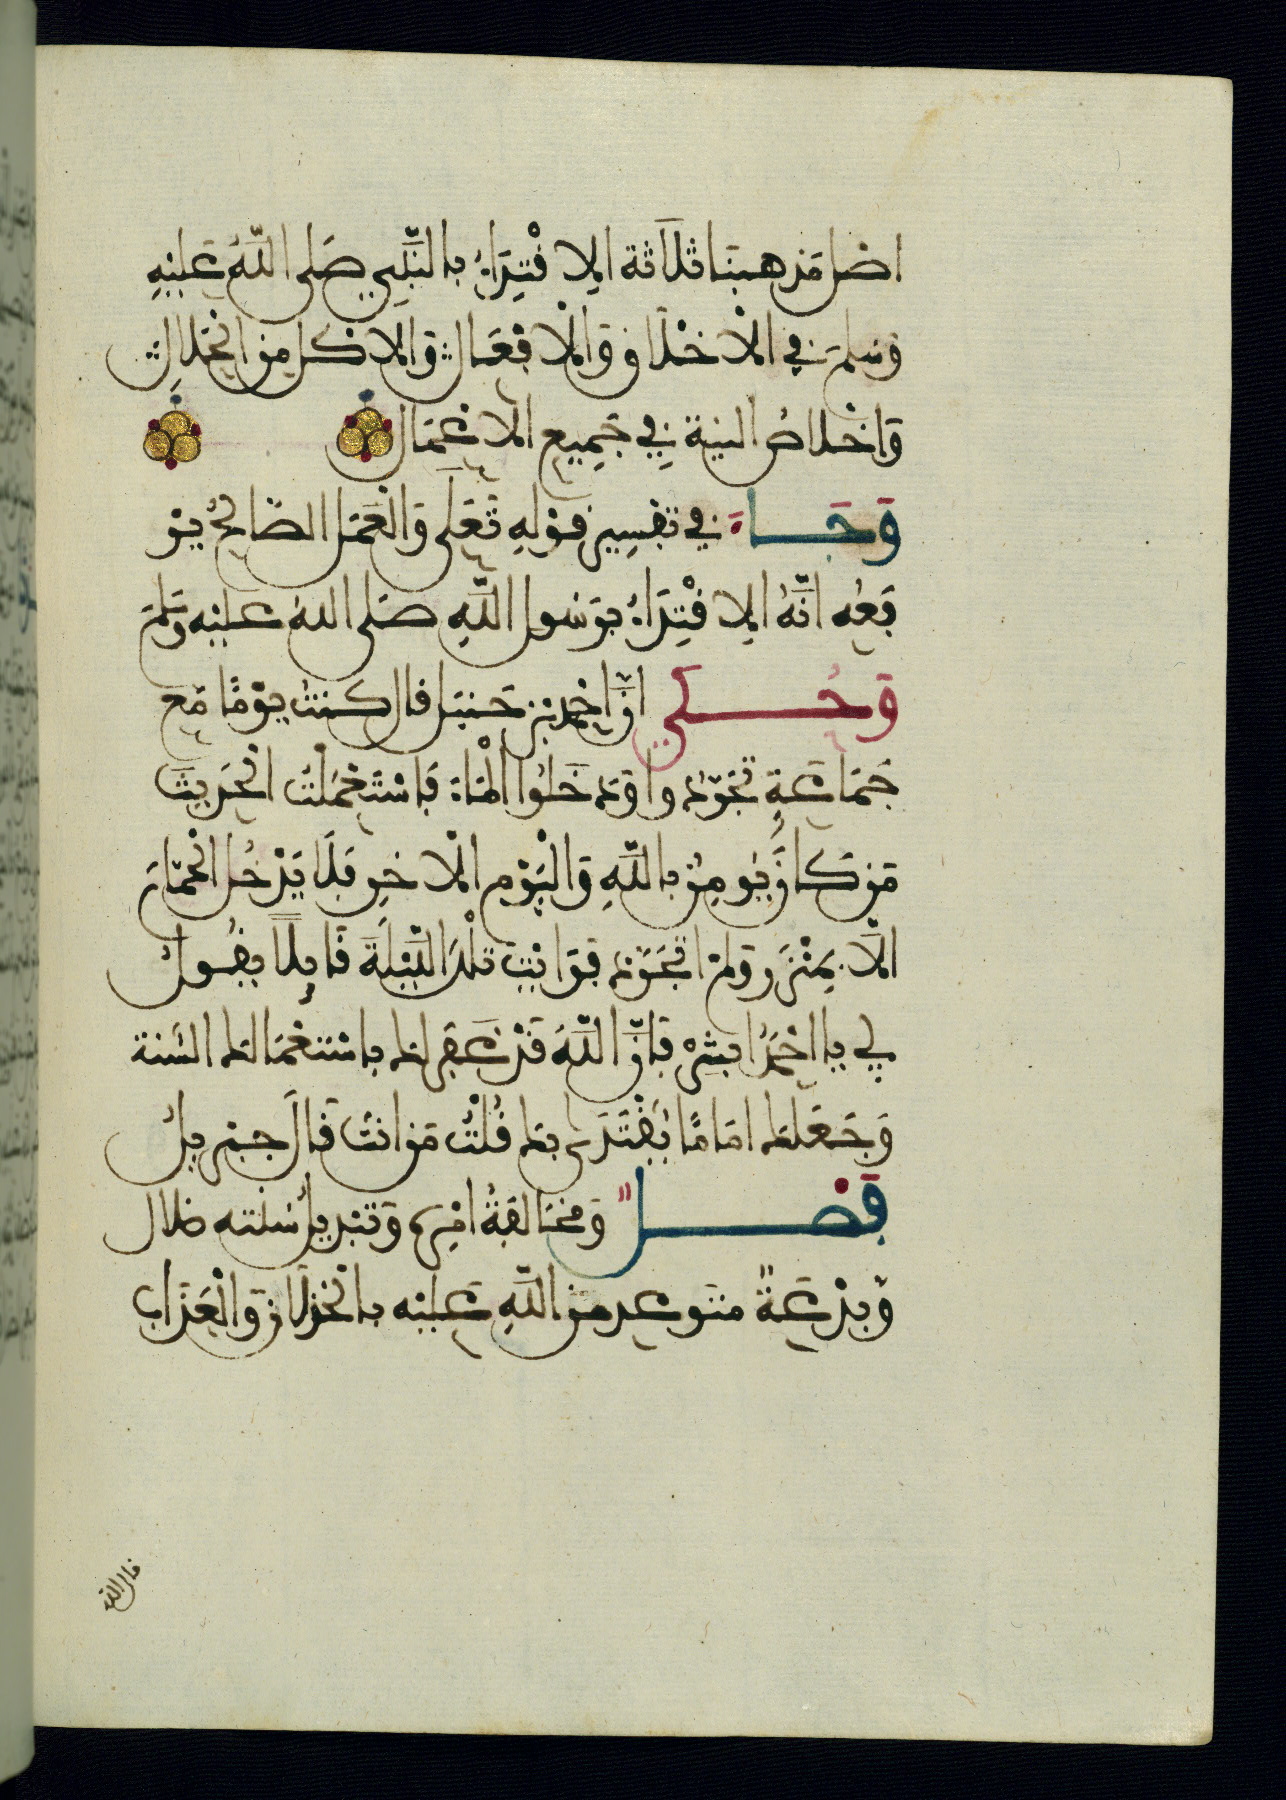 اصل مذهبنا ثلاثة الاِقْتِدَاءُ بالنَّبِي صَلى اللَّهُ عَلَيْهِ
وَسَلمَ في الْاَخْلَاق وَالْاَفْعَال وَالاَكل مِن الْحَلالِ
وَاخلاصُ النية فِي جَمِيع الاعْمَال
وَجَاءَ في تفسِير قوْلهِ تَعَلَى وَالْعَمَل الصَّالحُ يَرْ
فَعُه انَّهُ الاِقْتِدَاءُ بِرَسُول اللَّهِ صَلى الله عليْه وَسَلمَ
وَحُكِيَ انَّ احْمد بن حَنبَل قال كنتُ يوْمًا مَع
جَمَاعَةٍ تجَرّدُوا وَدَخَلُوا الْمَاءَ فَاسْتَعْمَلتُ الْحَدِيثَ
مَن كَانَ يُومِنُ بِاللَّهِ وَالْيَوْم الْاخرِ فَلَا يَدْخُل الْحَمّامَ
الَّا بمِئْزَرٍ وَلمَ اتَجَرَّدْ فَرَايْتُ تلْكَ اللَّيْلَةَ قَايلًا يقُولُ
لِي يا احْمَدُ ابشِرْ فَانَّ اللَّهَ قَدْ غَفَرَ لكَ باسْتعْمَالكَ السُّنة
وَجَعَلكَ امَامًا يُقْتَدَى بكَ قُلْتُ مَن انتَ قَالَ جبْرِيلُ
فَصْلٌ وَمُخَالَفَةُ امْرِهِ وَتبْدِيلُ سُنته ضلال
وَبدْعَةٌ متَوعد مِنَ اللَّهِ عَليْه بالْخذْلَان وَالْعَذَاب
قال الله